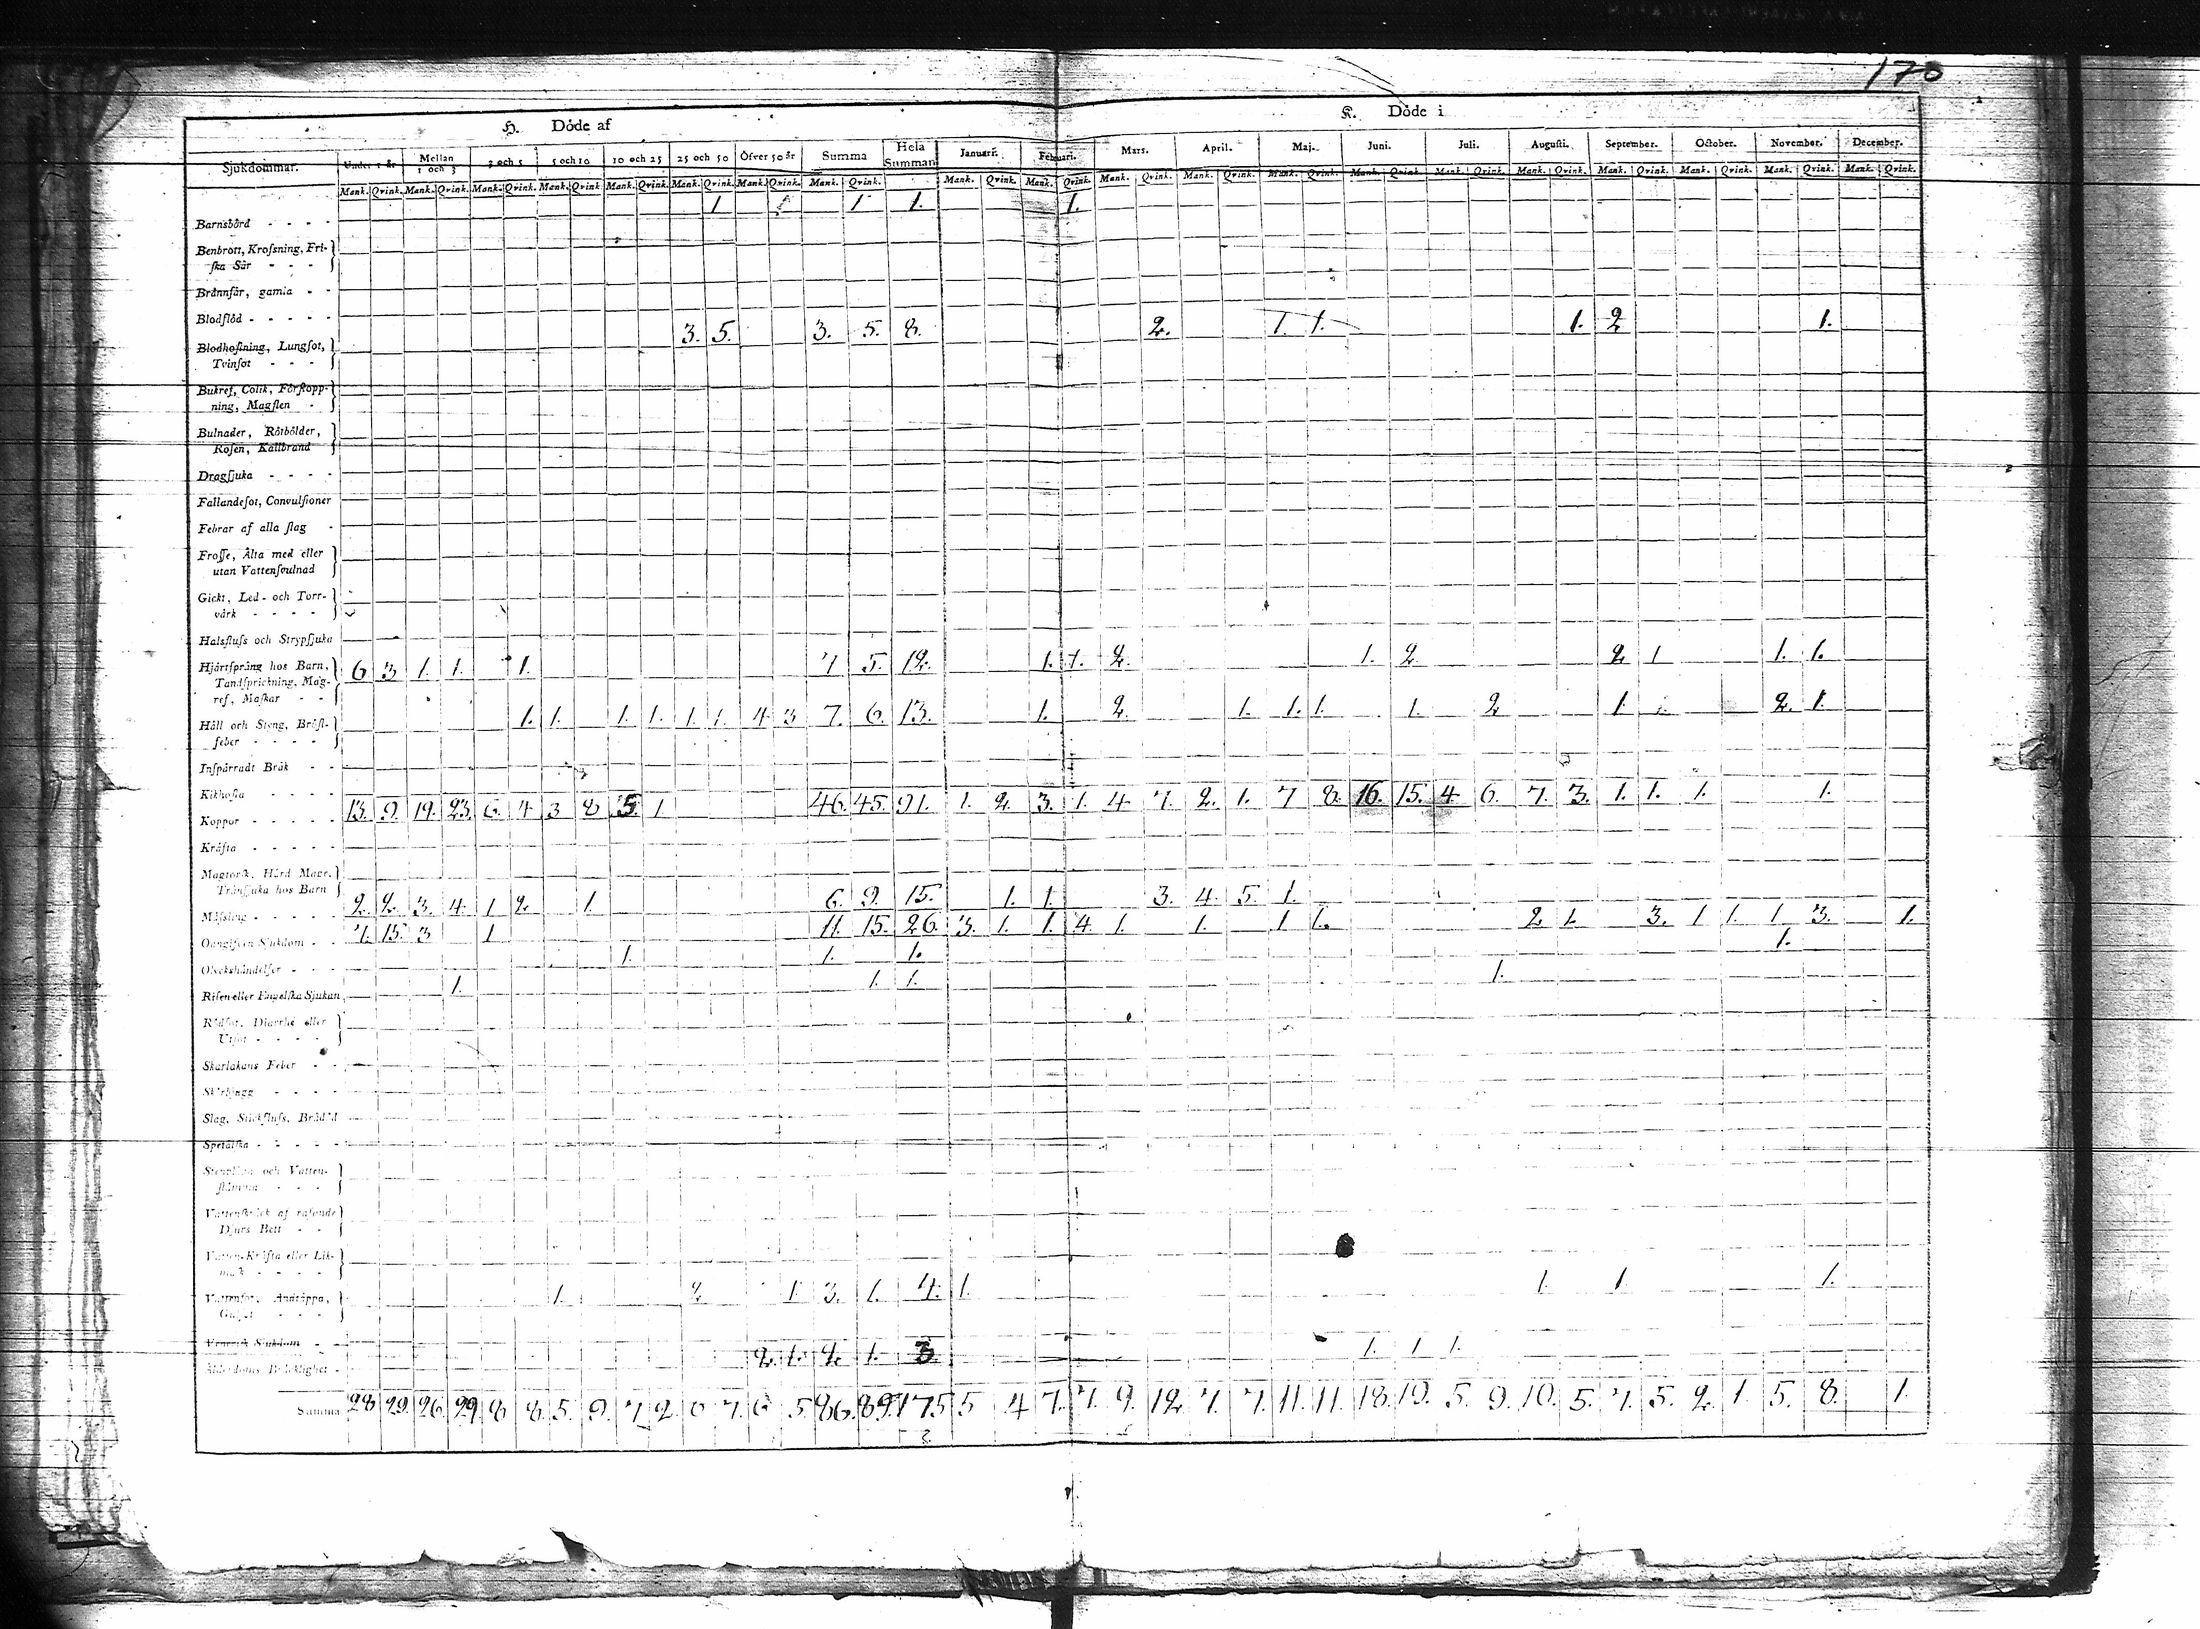 170
H. Döde af K. Döde i
Sjukdommar. Under 1 år Mellan 1 och 3 3 och 5 5 och 10 10 och 25 25 och 50 Öfver 50 år Summa Hela Summan Januari. Februari. Mars. April. Maj. Juni. Juli. Augusti. September. October. November. December.
Mank. Qvink. Mank. Qvink. Mank. Qvink. Mank. Qvink. Mank. Qvink. Mank. Qvink. Mank. Qvink. Mank. Qvink. Mank. Qvink. Mank. Qvink. Mank. Qvink. Mank. Qvink. Mank. Qvink. Mank. Qvink. Mank. Qvink. Mank. Qvink. Mank. Qvink. Mank. Qvink. Mank. Qvink. Mank. Qvink.
Barnsbörd - - - - 1 1 1. 1.
Benbrott, Krossning, Fri-
ska Sår - - -
Brännsår, gamla - -
Blodflöd - - - - -
Blodhostning, Lungsot, 3. 5. 3. 5. 8. 2. 1. 1. 1. 2 1.
Tvinsot - - -
Bukref, Colik, Förstopp-
ning, Magsten -
Bulnader, Rötbölder,
Rosen, Kallbrand
Dragsjuka - - - -
Fallandesot, Convulsioner
Febrar af alla slag -
Frosse, Älta med eller
utan Vattensvulnad
Gickt, Led- och Torr-
värk - - - -
Halsfluss och Strypsjuka
Hjärtsprång hos Barn, 6 3 1. 1. 1. 7 5. 12. 1. 1. 2. 1. 2. 2 1 1. 1.
Tandsprickning, Mag-
ref, Maskar - -
Håll och Styng, Bröst- 1. 1. 1. 1. 1. 1. 4. 3 7. 6. 13. 1. 2. 1. 1. 1. 1. 2 1. 2. 1.
feber - - - -
Inspärradt Bråk - -
Kikhosta - - - -
Koppor - - - - - 13. 9. 19. 23. 6. 4 3 8 5. 1. 46. 45. 91. 1. 2. 3. 1. 4. 7. 2. 1. 7 8. 16. 15. 4 6. 7. 3. 1. 1. 1. 1.
Kräfta - - - - -
Magtorsk, Hård Mage,
Tränsjuka hos Barn
Mässling - - - - - 2. 2. 3. 4. 1 2. 1. 6. 9. 15. 1. 1. 3. 4. 5. 1.
Oangifven Sjukdom - - 7. 15. 3 1 11. 15. 26. 3. 1. 1. 4. 1. 1. 1 1. 2 1. 3. 1 1. 1 3. 1.
Olyckshändelser - - - 1. 1. 1. 1.
Risen eller Engelska Sjukan 1. 1. 1. 1.
Rödsot, Diarrhé eller
Utsot - - - -
Skarlakans Feber - -
Skörbjugg - - - -
Slag, Stickfluss, Brådöd
Spetälska - - - - -
Stenplåga och Vatten-
stämma - - -
Vattenskräck af rasande
Djurs Bett - -
Vatten-Kräfta eller Lik-
mask - - - -
Vattensot, Andtäppa, 1. 2 1. 3. 1. 4. 1. 1. 1. 1.
Gulsot - - -
Venerisk Sjukdom - -
Ålderdoms Bräcklighet - 2. 1. 2. 1. 3. 1. 1 1.
Summa 28 29. 26. 29. 8 8. 5. 9. 7. 2 6 7. 6. 5. 86. 89. 175 5 4 7. 7. 9. 12. 7. 7. 11. 11. 18. 19. 5. 9. 10. 5. 7. 5. 2. 1. 5. 8. 1.